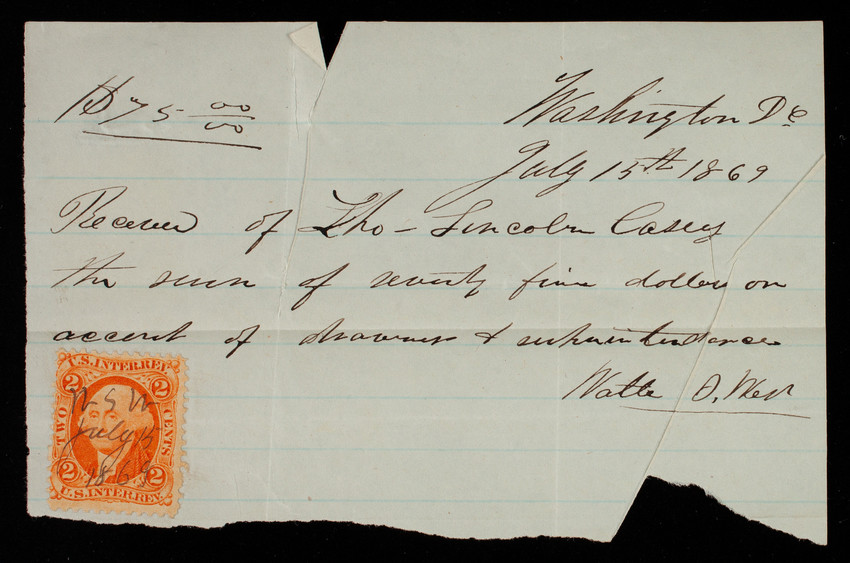 $75 00/00
Washington Dc
July 15th 1869
Received of Tho- Lincoln Casey
the sum of seventy five dollars on
account of drawings & superintendence
West
U.S. INTER. REV.
2 2
TWO CENTS
July 15
1869
2 2
U.S. INTER. REV.